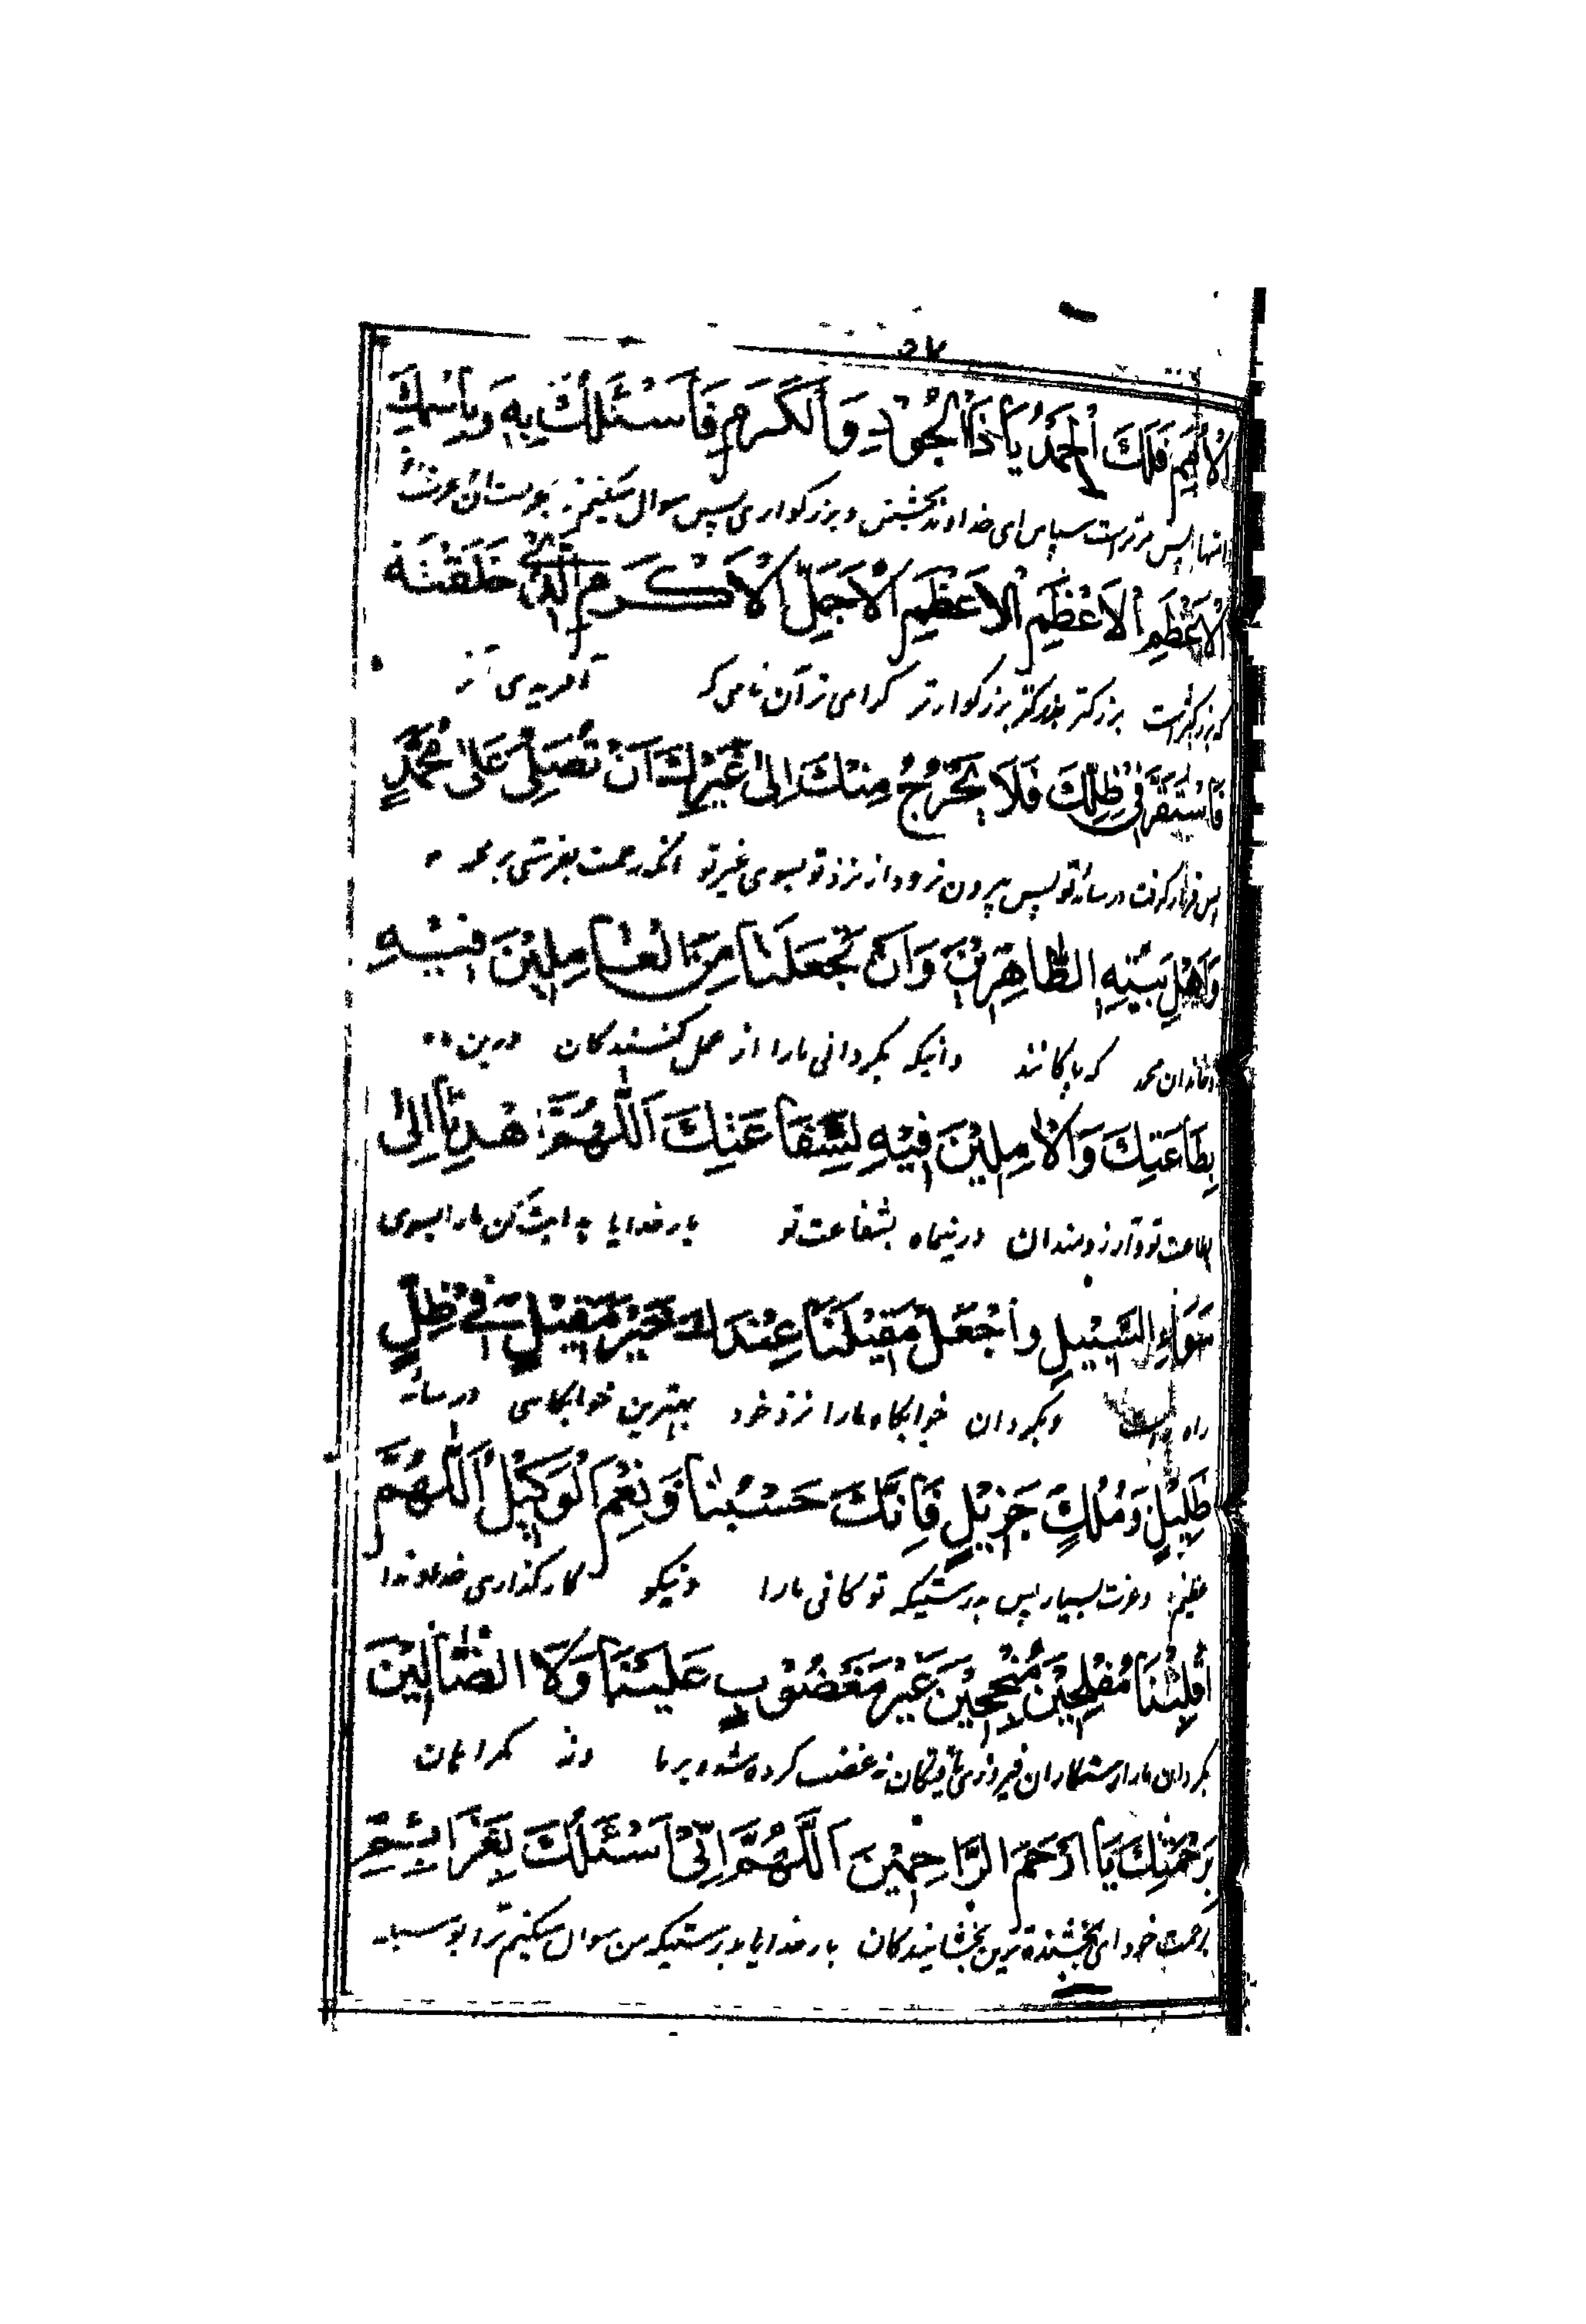 ۵۷
الْاُمَمِ فَلَكَ الْحَمْدُ يَا ذَا الْجُوْدِ وَالْكَرَمِ فَاَسْئَلُكَ بِهِ وَبِاسْمِكَ
پس مرتراست سپاس ای خداوند بخشش و بزرگواری پس سوال میکنیم
الْاَعْظَمِ الْاَعْظَمِ الْاَعْظَمِ الْاَجَلِّ الْاَكْرَمِ الَّذِىْ خَلَقْتَهُ
بزرگتر بزرگتر بزرگوارتر گرامی تر آن نامی که آفریدی آنرا
فَاسْتَقَرَّ فِىْ ظِلِّكَ فَلَا يَخْرُجُ مِنْكَ اِلىٰ غَيْرِكَ اَنْ تُصَلِّىَ عَلىٰ مُحَمَّدٍ
پس قرار گرفت در سایه تو پس بیرون نرود از نزد تو بسوی غیر تو انکه رحمت بفرستی بر محمد
وَاَهْلِ بَيْتِهِ الطَّاهِرِيْنَ وَاَنْ تَجْعَلَنَا مِنَ الْعَامِلِيْنَ فِيْهِ
وخاندان محمد که پاکانند وانیکه بگردانی مارا از عمل کنندکان درین
بِطَاعَتِكَ وَالْاٰمِلِيْنَ فِيْهِ لِشَفَاعَتِكَ اَللّٰهُمَّ اهْدِنَا اِلىٰ
اطاعت تو وآرزومندان درینماه بشفاعت تو بارخدایا هدایت کن مارا بسوی
سَوَاءِ السَّبِيْلِ وَاجْعَلْ مَقِيْلَنَا عِنْدَكَ خَيْرَ مَقِيْلٍ فِىْ ظِلٍّ
راه راست وبگردان خوابگاه مارا نزد خود بهترین خوابگاهی در سایه
ظَلِيْلٍ وَمُلْكٍ جَزِيْلٍ فَاِنَّكَ حَسْبُنَا وَنِعْمَ الْوَكِيْلُ اَللّٰهُمَّ
عظیم وعزت بسیار پس بدرستیکه تو کافی مارا ونیکو کارگذاری خداوندا
اَقْلِبْنَا مُفْلِحِيْنَ مُنْجِحِيْنَ غَيْرَ مَغْضُوْبٍ عَلَيْنَا وَلَا الضَّالِّيْنَ
بگردان مارا رستگاران فیروزی یافتگان نه غضب کرده شده برما ونه گمراهان
بِرَحْمَتِكَ يَا اَرْحَمَ الرَّاحِمِيْنَ اَللّٰهُمَّ اِنِّىْ اَسْئَلُكَ بِعَزَائِمِ
برحمت خود ای بخشنده ترین بخشایندگان بارخدایا بدرستیکه من سوال میکنیم ترا بوسیله